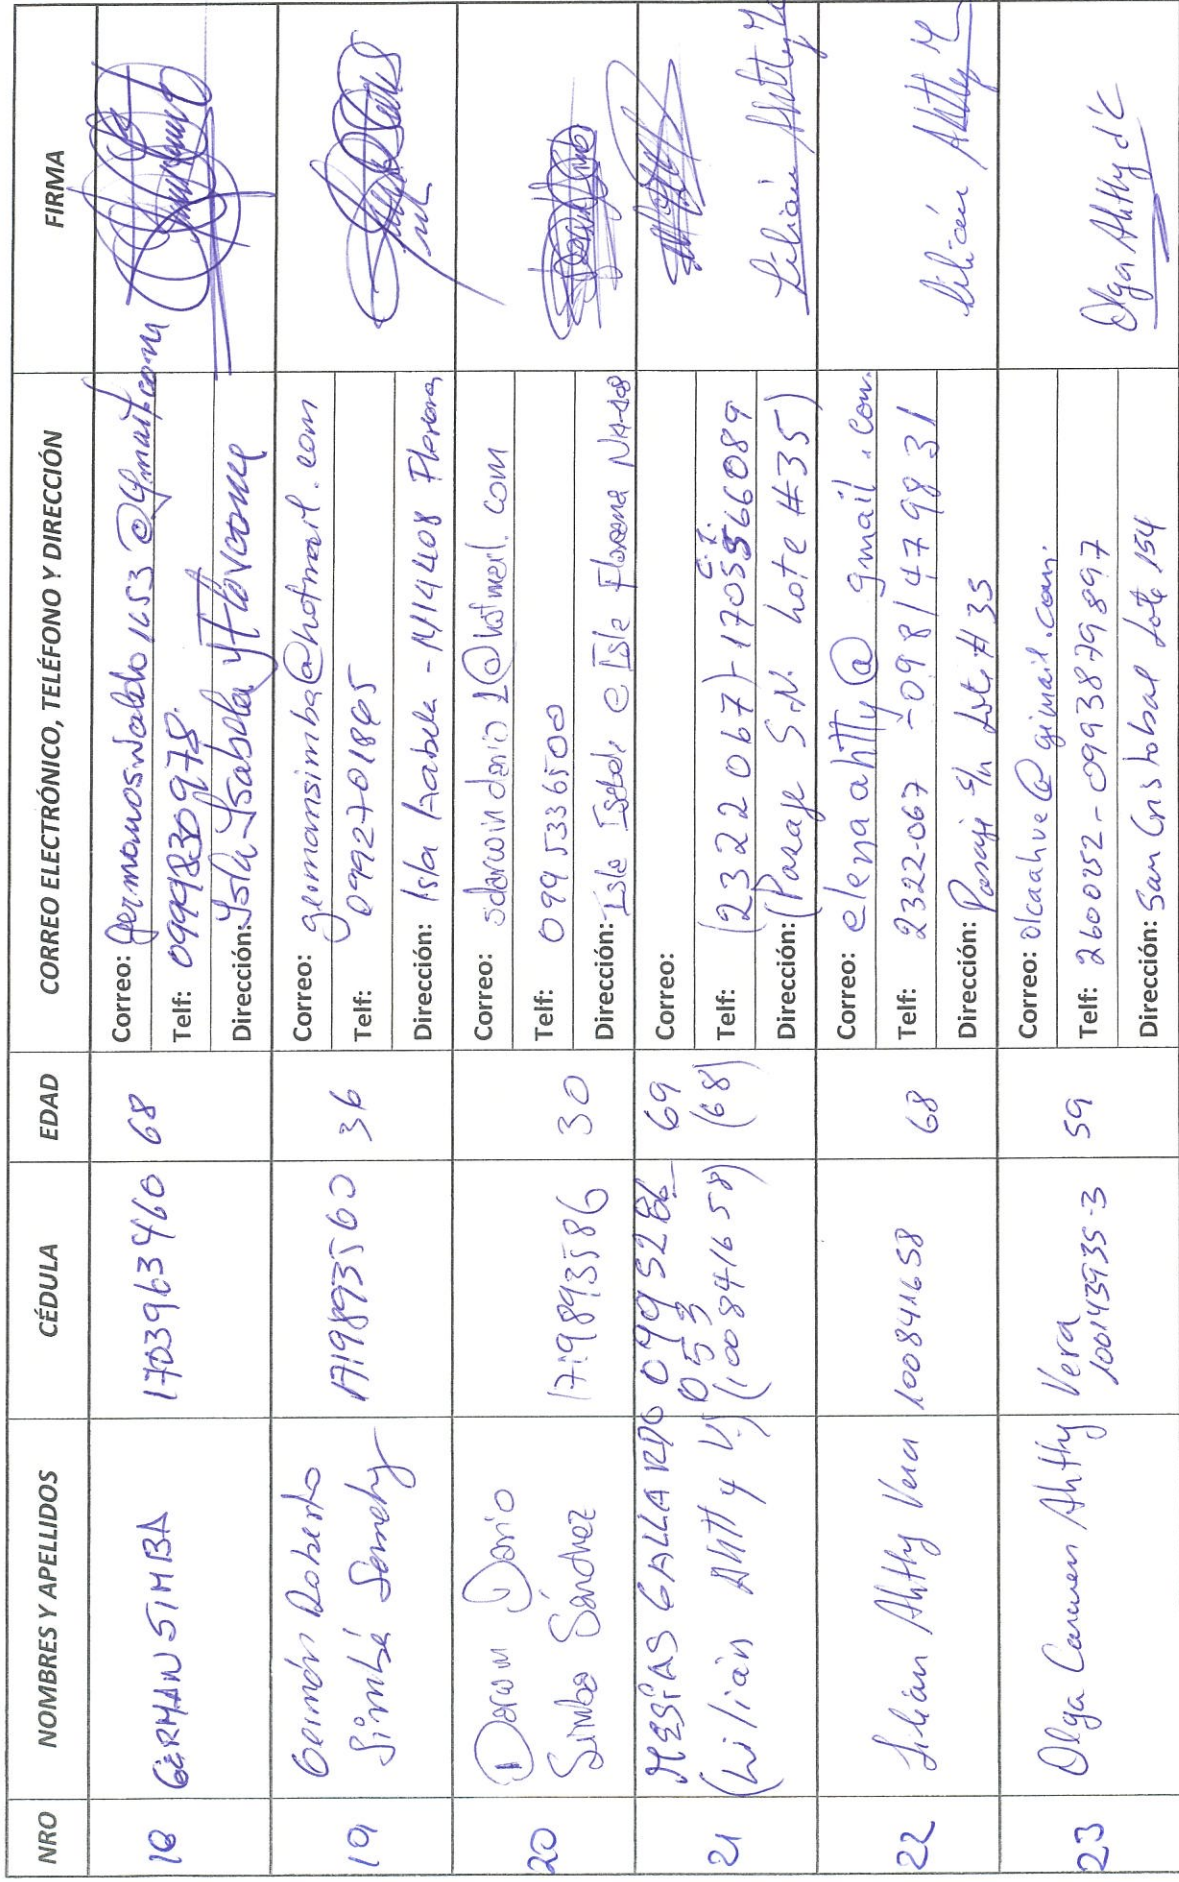 NRO NOMBRES Y APELLIDOS CÉDULA EDAD CORREO ELECTRÓNICO, TELÉFONO Y DIRECCIÓN FIRMA
18 GERMAN SIMBA 1703963460 68
Correo: germanosvaldo1653@gmail.com
Telf: 0999830978.
Dirección: Isla Isabela y Floreana
19 Germán Roberto
Simbá 1719893560 36
Correo: germansimba@hotmail.com
Telf: 0992701865
Dirección: Isla Isabela - N14408 Floreana
20 Darwin Darío
Simba Sánchez 1719893586 30
Correo: sdarwindario1@hotmail.com
Telf: 0995336500
Dirección: Isla Isabela e Isla Floreana
21 MESÍAS GALLARDO 69
(Lilián Ahtty V.) (100841658) (68)
Correo:
Telf: (2322067) - C.I. 1705566089
Dirección: (Pasaje S.N. Lote #35)
Lilián Ahtty
22 Lilián Ahtty Vera 100841658 68
Correo: elenaahtty@gmail.com.
Telf: 2322-067 - 0981479831
Dirección: Pasaje s/n Lote #35
Lilián Ahtty
23 Olga Carmen Ahtty Vera
100143935-3 59
Correo: olcaahve@gimail.com.
Telf: 2600252 - 0993879897
Dirección: San Cristobal Lote 154
Olga Ahtty d